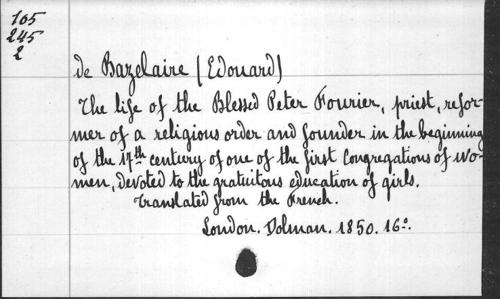 105
245
2
de Bazelaire (Edouard)
The life of the Blessed Peter Fourier, priest, refor-
mer of a religious order and founder in the beginning
of the 17th century of one of the first Congregations of wo-
men, devoted to the gratuitous education of girls.
Translated from the French.
London. Dolman. 1850. 16°.